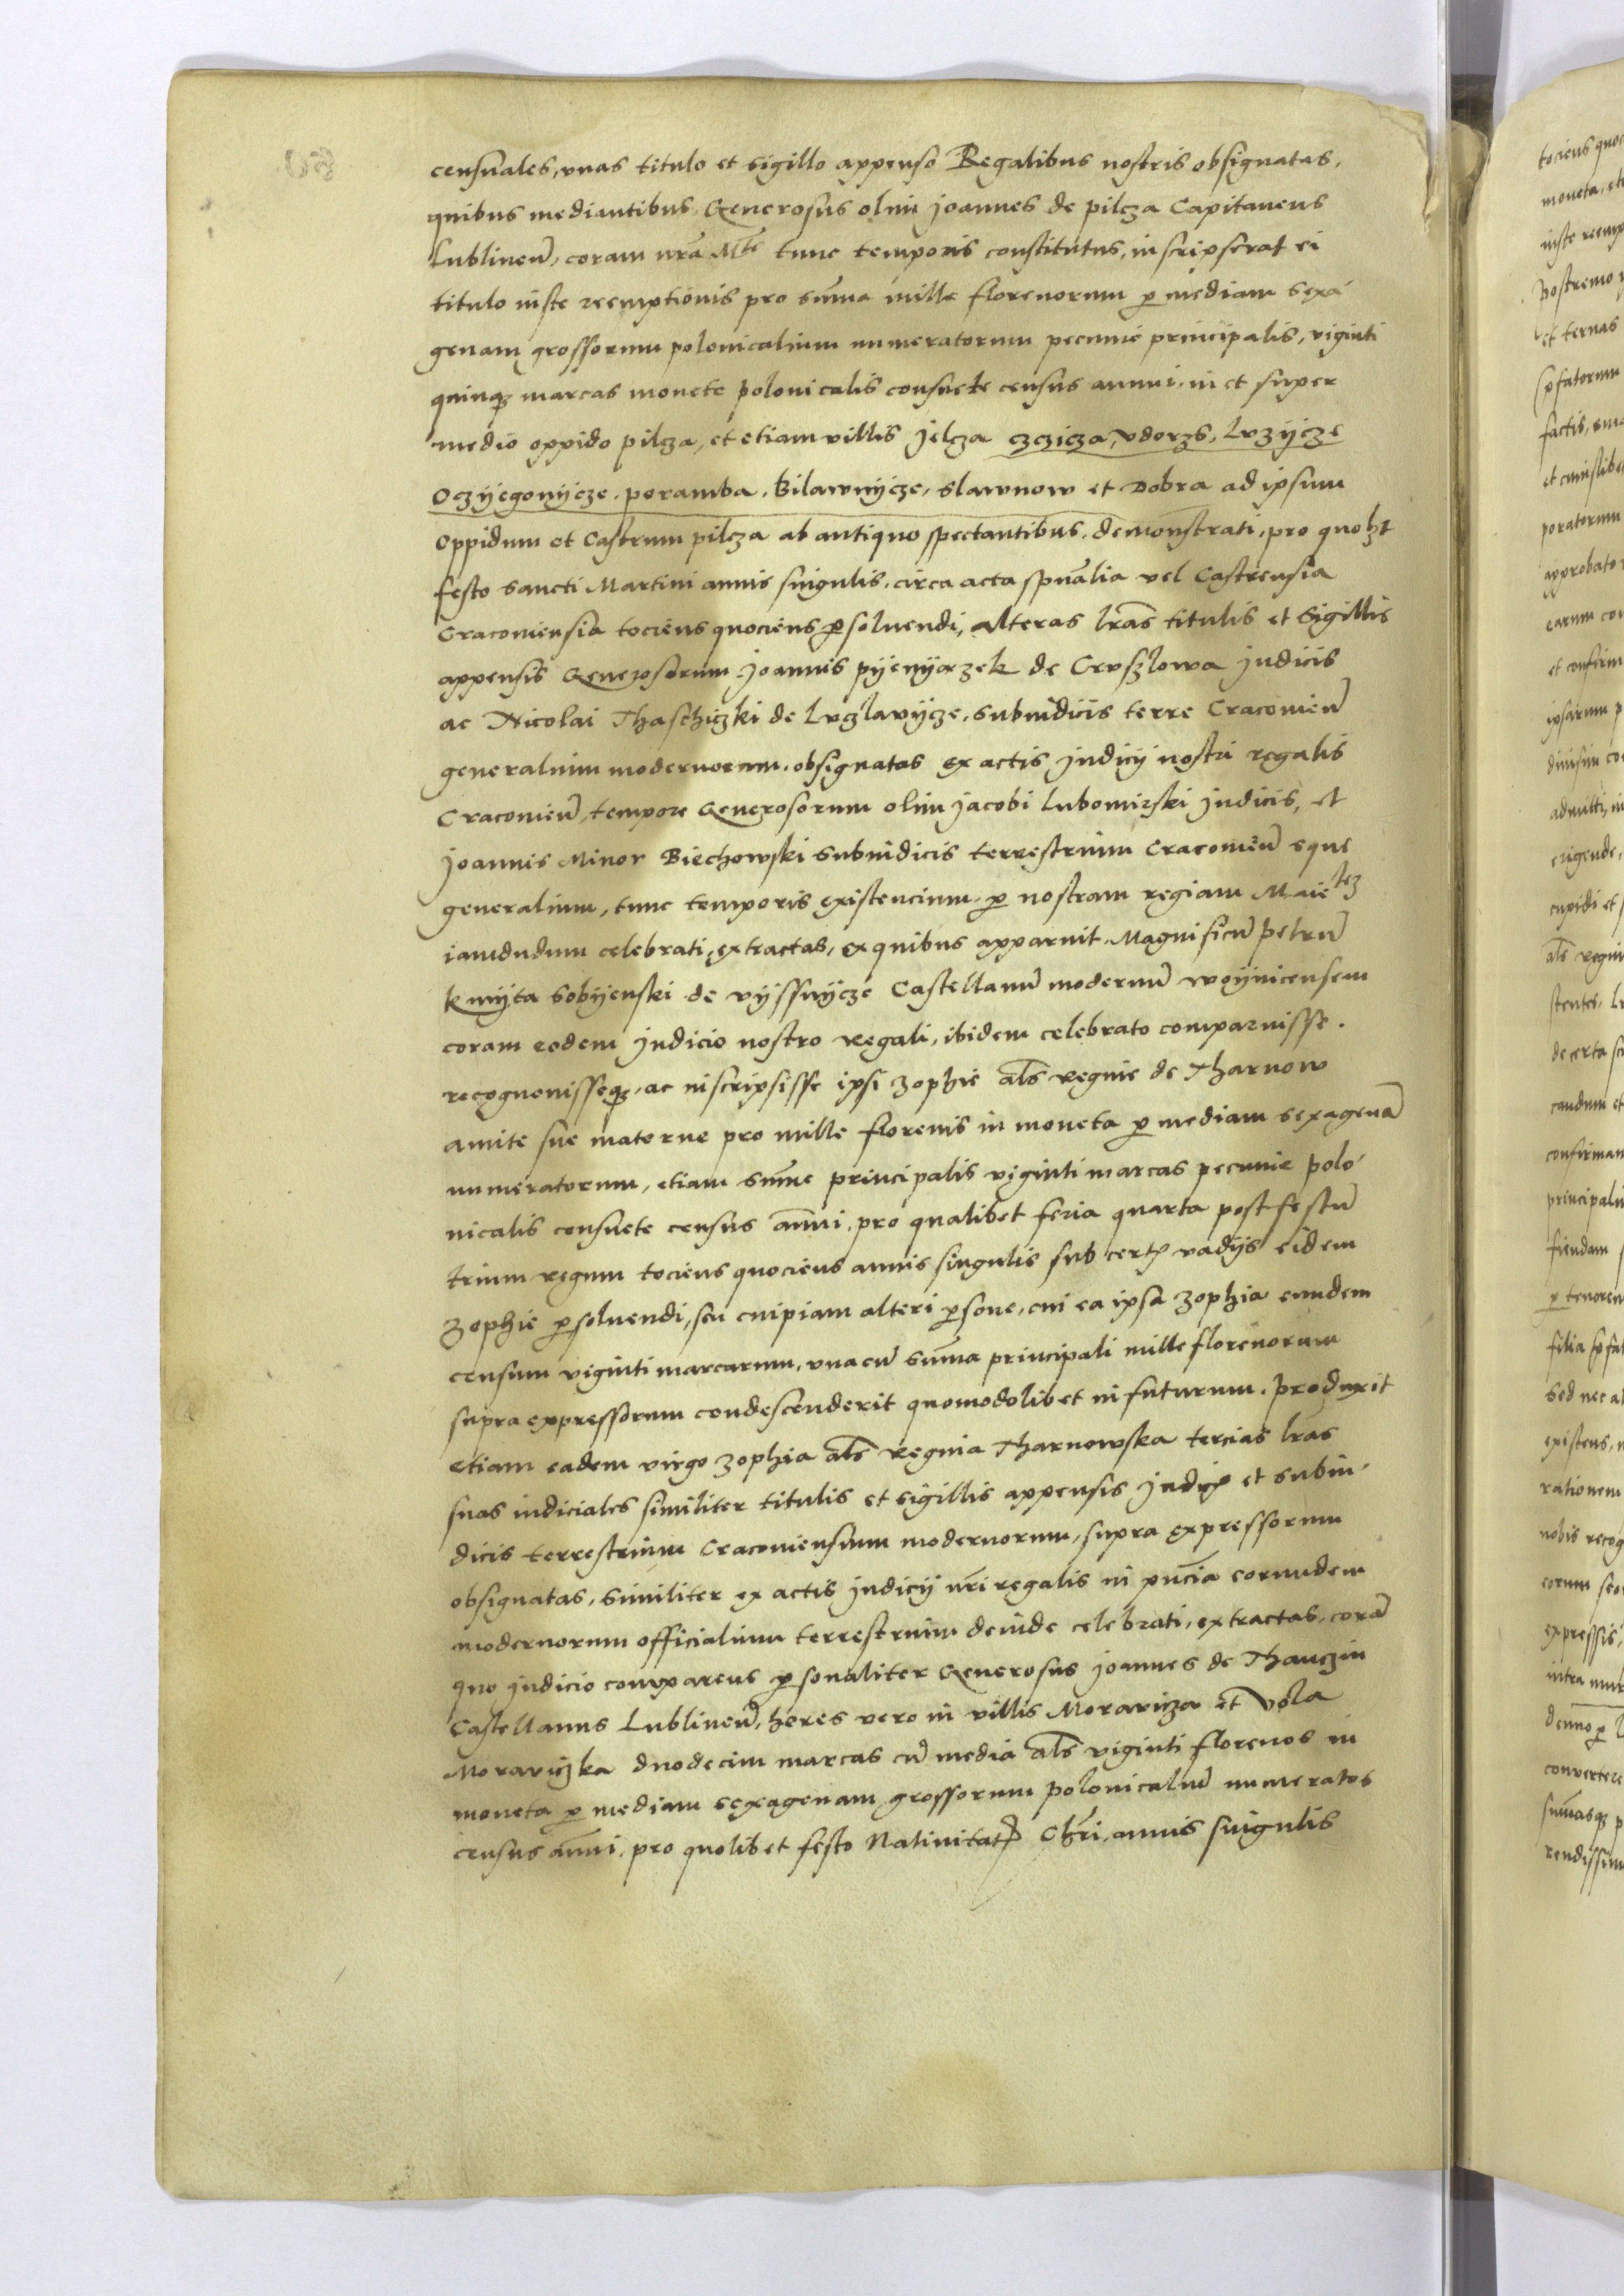 censuales, vnas titulo et sigillo appenso Regalibus nostris obsignatas,
quibus mediantibus, Generosus olim Joannes de pilcza Capitaneus
Lublinen̄, coram nr̄a Mte tunc temporis constitutus, inscripserat ei
titulo iuste reemptionis pro sum̄a mille florenorum p mediam sexa
genam grossorum polonicalium numeratorum pecunie principalis, viginti
quinqz marcas monete polonicalis consuete census annui, in et super
medio oppido pilcza, et etiam villis Jelcza czicza, vdorzs, Lvzÿcze
Oczÿegonÿcze, poramba, Bilawnÿcze, slawnow et Dobra ad ipsum
Oppidum et Castrum pilcza ab antiquo spectantibus, demonstrati, pro quolzt
festo sancti Martini annis singulis, circa acta spūalia vel Castrensia
Cracouiensia tociens quociens psoluendi, alteras lr̄as titulis et Sigillis
appensis Generosorum Joannis pÿenÿazek de Crvszlowa Judicis
ac Nicolai Thaschiczki de Lvczlavÿcze, subiudicis terre Cracouien̄
generalium modernorum, obsignatas ex actis Judicij nostri regalis
Cracouien̄, tempore Generosorum olim Jacobi Lubomirski Judicis, et
Joannis Minor Biechowski subiudicis terrestrium Cracouien̄ eque
generalium, tunc temporis existencium, p nostram regiam Maietez
iamdudum celebrati, extractas, ex quibus apparuit, Magnificū petrū
kmÿta Sobÿenski de vÿssnÿcze Castellanū modernū woÿnicensem
coram eodem Judicio nostro regali, ibidem celebrato comparuisse.
recognouisseqz, ac inscripsisse ipsi zophie al̄s regnie de Tharnow
amite sue materne pro mille florenis in moneta p mediam sexagenā
numeratorum, etiam sum̄e principalis viginti marcas pecunie polo
nicalis consuete census an̄ui, pro qualibet feria quarta post festū
trium regum tociens quociens annis singulis sub cert vadijs eidem
zophie psoluendi, seu cuipiam alteri psone, cui ea ipsa zophia eundem
censum viginti marcarum, vna cū sum̄a principali mille florenorum
supra expressorum condescenderit quomodolibet in futurum. produxit
etiam eadem virgo zophia al̄s regnia Tharnowska tercias lr̄as
suas iudiciales similiter titulis et sigillis appensis Judic et subiu
dicis terrestrium Cracouiensium modernorum, supra expressorum
obsignatas, similiter ex actis Judicij nr̄i regalis in pn̄cia eorundem
modernorum officialium terrestrium deinde celebrati, extractas, corā
quo Judicio comparens psonaliter Generosus Joannes de Thanczin
Castellanus Lublinen̄, heres vero in villis Moravicza et Vola
Moraviczka duodecim marcas cū media al̄s viginti florenos in
moneta p mediam sexagenam grossorum polonicaliū numeratos
census an̄ui, pro quolibet festo Natiuitat Chr̄i, annis singulis